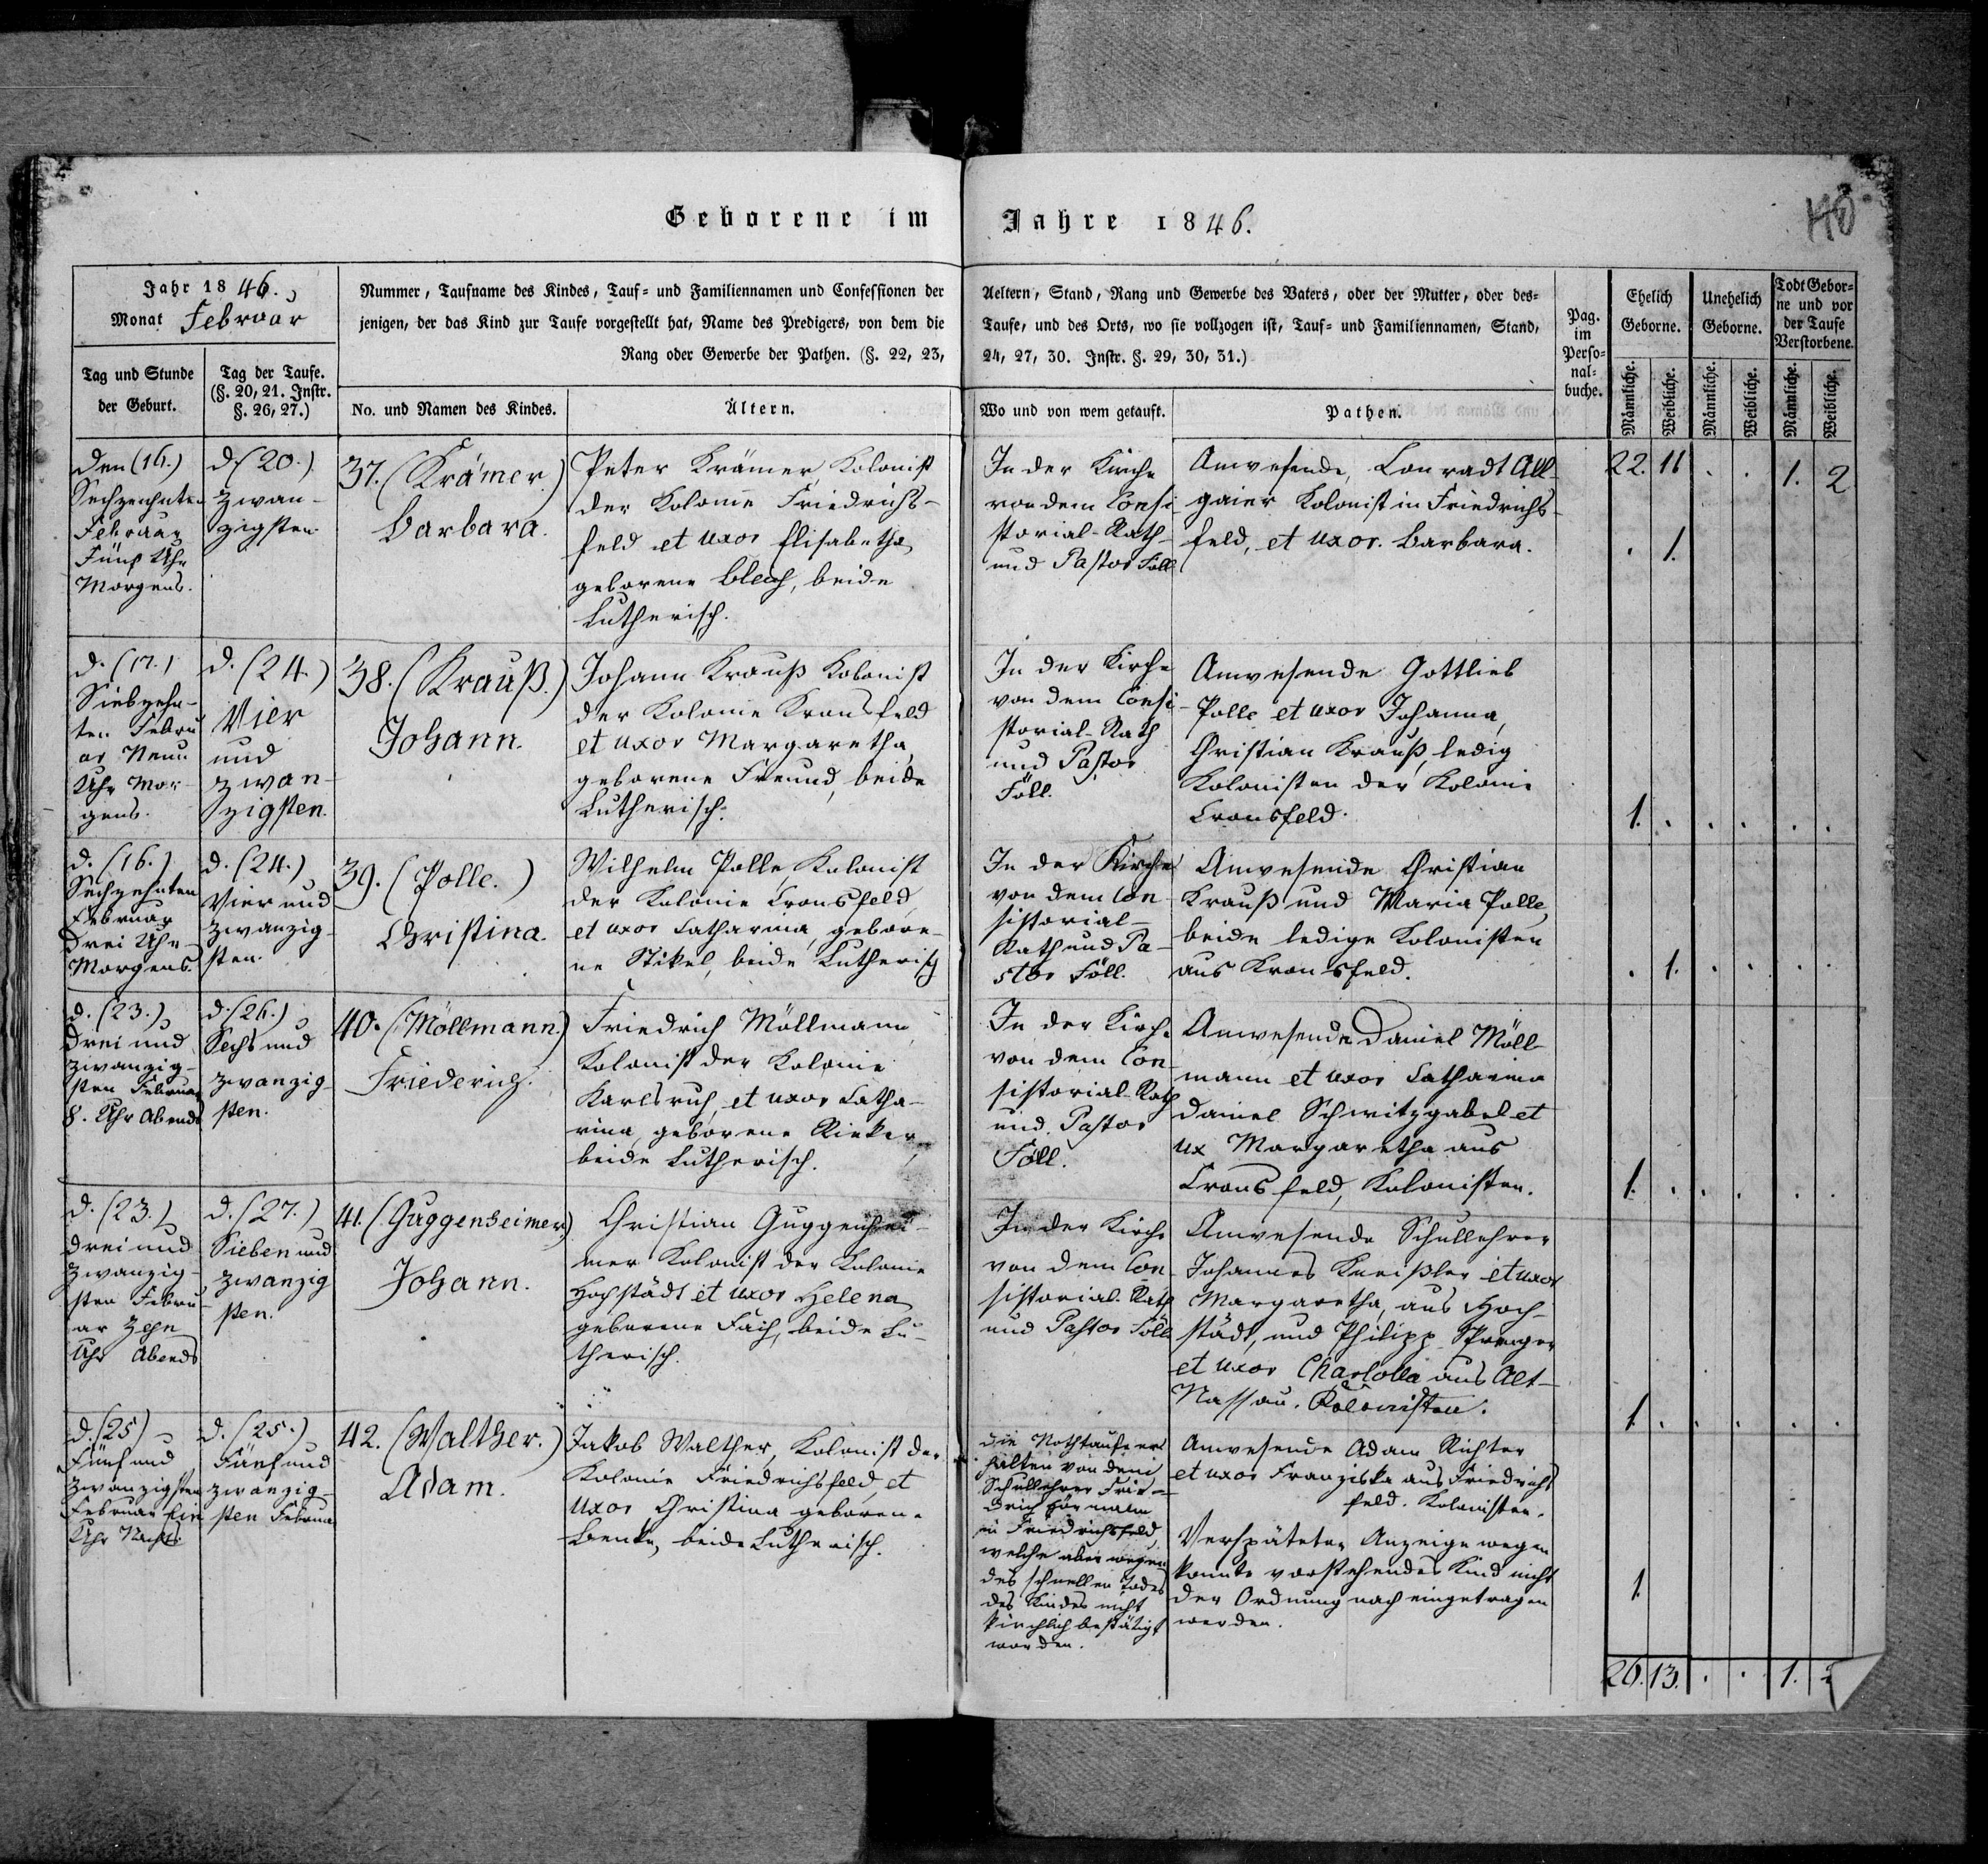 Geborene im Jahre 1846.
40
Jahr 1846.
Monat Februar
Nummer, Taufname des Kindes, Tauf- und Familiennamen und Confessionen der Aeltern, Stand, Rang und Gewerbe des Vaters, oder der Mutter, oder des-
jenigen, der das Kind zur Taufe vorgestellt hat, Name des Predigers, von dem die Taufe, und des Orts, wo sie vollzogen ist, Tauf- und Familiennamen, Stand,
Rang oder Gewerbe der Pathen. (§. 22, 23, 24, 27, 30. Instr. §. 29, 30, 31.)
Tag und Stunde
der Geburt.
Tag der Taufe.
(§. 20, 21. Instr.
§. 26, 27.)
No. und Namen des Kindes.
Ältern.
Wo und von wem getauft.
Pathen.
Pag.
im
Perso-
nal-
buche.
Ehelich
Geborne.
Unehelich
Geborne.
Todt Gebor-
ne und vor
der Taufe
Verstorbene.
Männliche.
Weibliche.
Männliche.
Weibliche.
Männliche.
Weibliche.
Den (16.)
Sechzehnten
Februar
Fünf Uhr
Morgens.
d. (20.)
zwan-
zigsten.
37. (Krämer.)
Barbara.
Peter Krämer, Kolonist
der Kolonie Friedrichs-
feld et uxor Elisabetha
geborene Blech, beide
Lutherisch.
In der Kirche
von dem Consi-
storial-Rath
und Pastor Föll
Anwesende, Conradt All-
gaier Kolonist in Friedrichs-
feld, et uxor. Barbara.
22. 11 . . 1. 2
. 1.
d. (17.)
Siebzehn-
ten Febru
ar Neun
Uhr Mor-
gens.
d. (24.)
Vier
und
zwan-
zigsten.
38. (Krauß.)
Johann.
Johann Krauß Kolonist
der Kolonie Kronsfeld
et uxor Margaretha,
geborene Freund, beide
Lutherisch.
In der Kirche
von dem Consi-
storial-Rath
und Pastor
Föll.
Anwesende Gottlieb
Polle et uxor Johanna,
Christian Krauß, ledig
Kolonisten der Kolonie
Cronsfeld.
1. . . . . .
d. (16.)
Sechzehnten
Februar
Drei Uhr
Morgens.
d. (24.)
Vier und
zwanzig-
sten.
39. (Polle.)
Christina.
Wilhelm Polle, Kolonist
der Kolonie Cronsfeld,
et uxor Catharina, gebore-
ne Stikel, beide Lutherisch
In der Kirche
von dem Con
sistorial-
Rath und Pa-
stor Föll.
Anwesende Christian
Krauß und Maria Polle,
beide ledige Kolonisten
aus Kronsfeld.
. 1. . . . .
d. (23.)
Drei und
zwanzig-
sten Februar
8. Uhr Abends
d. (26.)
Sechs und
zwanzig-
sten.
40. (Möllmann.)
Friederich.
Friedrich Möllmann,
Kolonist der Kolonie
Karlsruh, et uxor Catha-
rina, geborene Rieker,
beide Lutherisch.
In der Kirche
von dem Con
sistorial-Rath
und Pastor
Föll.
Anwesende Daniel Möll-
mann et uxor Catharina
Daniel Schwitzgabel et
ux Margaretha aus
Cronsfeld, Kolonisten.
1. . . . . .
d. (23.)
Drei und
zwanzig-
sten Febru-
ar Zehn
Uhr Abends
d. (27.)
Sieben und
zwanzig
sten.
41. (Guggenheimer.)
Johann.
Christian Guggenhei-
mer Kolonist der Kolonie
Hochstädt et uxor Helena
geborene Faich, beide Lu-
therisch.
In der Kirche
von dem Con-
sistorial-Rath
und Pastor Föll
Anwesende Schullehrer
Johannes Kneißler et uxor
Margaretha, aus Hoch-
städt, und Philipp Sprenger
et uxor Charlotta aus Alt-
Nassau. Kolonisten.
1. . . . . .
d. (25)
Fünf und
zwanzigsten
Februar Ein
Uhr Nachts
d. (25.)
Fünf und
zwanzig-
sten Februar
42. (Walther.)
Adam.
Jakob Walther, Kolonist der
Kolonie Friedrichsfeld, et
uxor Christina geborene
Benke, beide Lutherisch.
Die Nothtaufe er
halten von dem
Schullehrer Frie-
drich Hörmann
in Friedrichsfeld,
welche aber wegen
des schnellen Todes
des Kindes nicht
kirchlich bestätigt
worden.
Anwesende Adam Richter
et uxor Franziska aus Friedrichs
feld. Kolonisten.
Verspäteter Anzeige wegen
konnte vorstehendes Kind nicht
der Ordnung nach eingetragen
werden.
1
26. 13. . . 1. 2